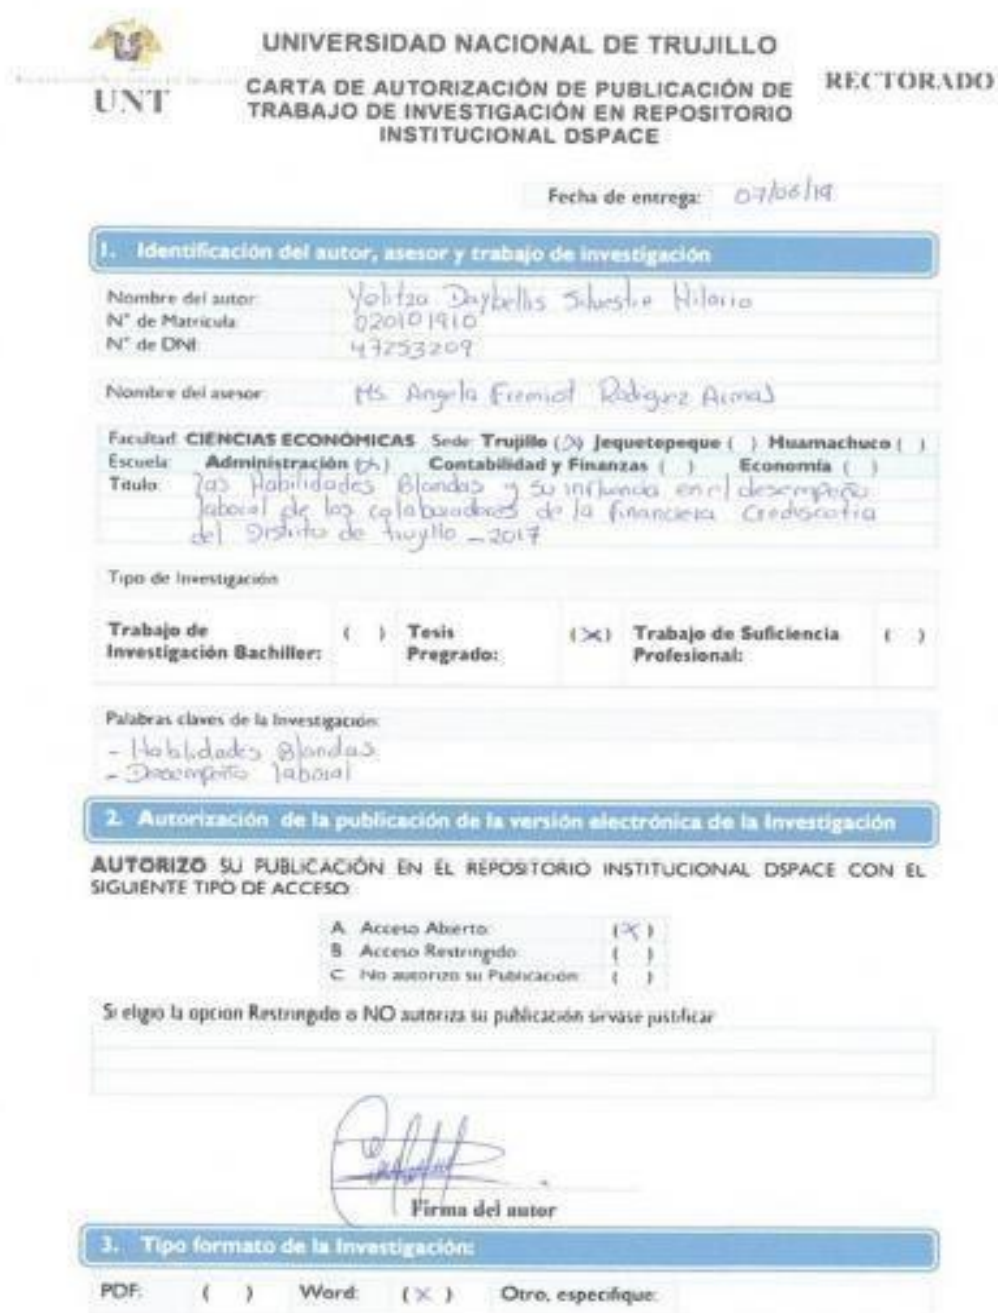 UNIVERSIDAD NACIONAL DE TRUJILLO
UNT
CARTA DE AUTORIZACIÓN DE PUBLICACIÓN DE
TRABAJO DE INVESTIGACIÓN EN REPOSITORIO
INSTITUCIONAL DSPACE
RECTORADO
Fecha de entrega: 07/06/19
1. Identificación del autor, asesor y trabajo de investigación
Nombre del autor: Yolitza Daybellis Silvestre Hilario
N° de Matricula: 020101910
N° de DNI: 47253209
Nombre del asesor: Ms. Angela Fremiot Rodriguez Armas
Facultad: CIENCIAS ECONÓMICAS Sede: Trujillo (X) Jequetepeque ( ) Huamachuco ( )
Escuela: Administración (X) Contabilidad y Finanzas ( ) Economía ( )
Titulo: las Habilidades Blandas y su influencia en el desempeño
laboral de los colaboradores de la financiera Crediscotia
del Distrito de trujillo - 2017
Tipo de Investigación
Trabajo de Investigación Bachiller: ( ) Tesis Pregrado: (X) Trabajo de Suficiencia Profesional: ( )
Palabras claves de la Investigación:
- Habilidades Blandas
- Desempeño laboral
2. Autorización de la publicación de la versión electrónica de la Investigación
AUTORIZO SU PUBLICACIÓN EN EL REPOSITORIO INSTITUCIONAL DSPACE CON EL
SIGUIENTE TIPO DE ACCESO:
A. Acceso Abierto: (X)
B. Acceso Restringido: ( )
C. No autorizo su Publicación: ( )
Si eligio la opcion Restringido o NO autoriza su publicación sirvase justificar
Firma del autor
3. Tipo formato de la Investigación:
PDF: ( ) Word: (X) Otro, especifique: